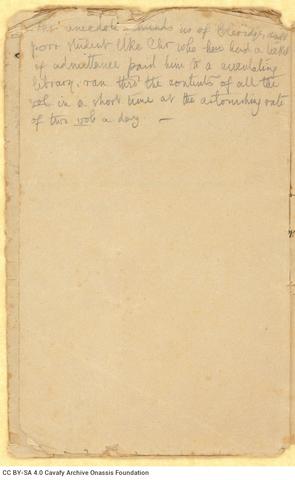 This anecdote reminds us of Coleridge, and
poor student like Chr who have had a ticket
of admittance paid him to a circulating
library, ran thro' the contents of all the
vol in a short time at the astonishing rate
of two vols a day —
CC BY-SA 4.0 Cavafy Archive Onassis Foundation